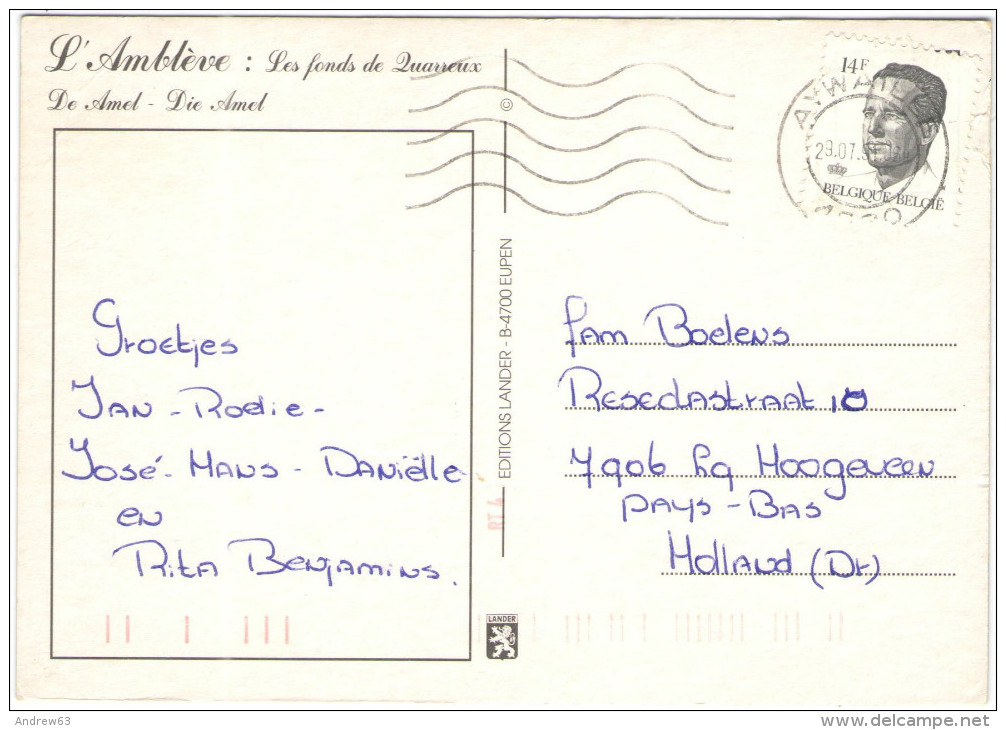 L'Amblève : Les fonds de Quarreux
De Amel - Die Amel
©
14F
AYWAILLE
29.07.9
BELGIQUE-BELGIË
4920
EDITIONS LANDER - B-4700 EUPEN
Groetjes
Jan - Rodie -
José - Hans - Daniëlle
en
Rita Benjamins.
fam Boelens
Resedastraat 10
7906 hg Hoogeveen
Pays-Bas
Holland (Dr)
LANDER
Andrew63
www.delcampe.net